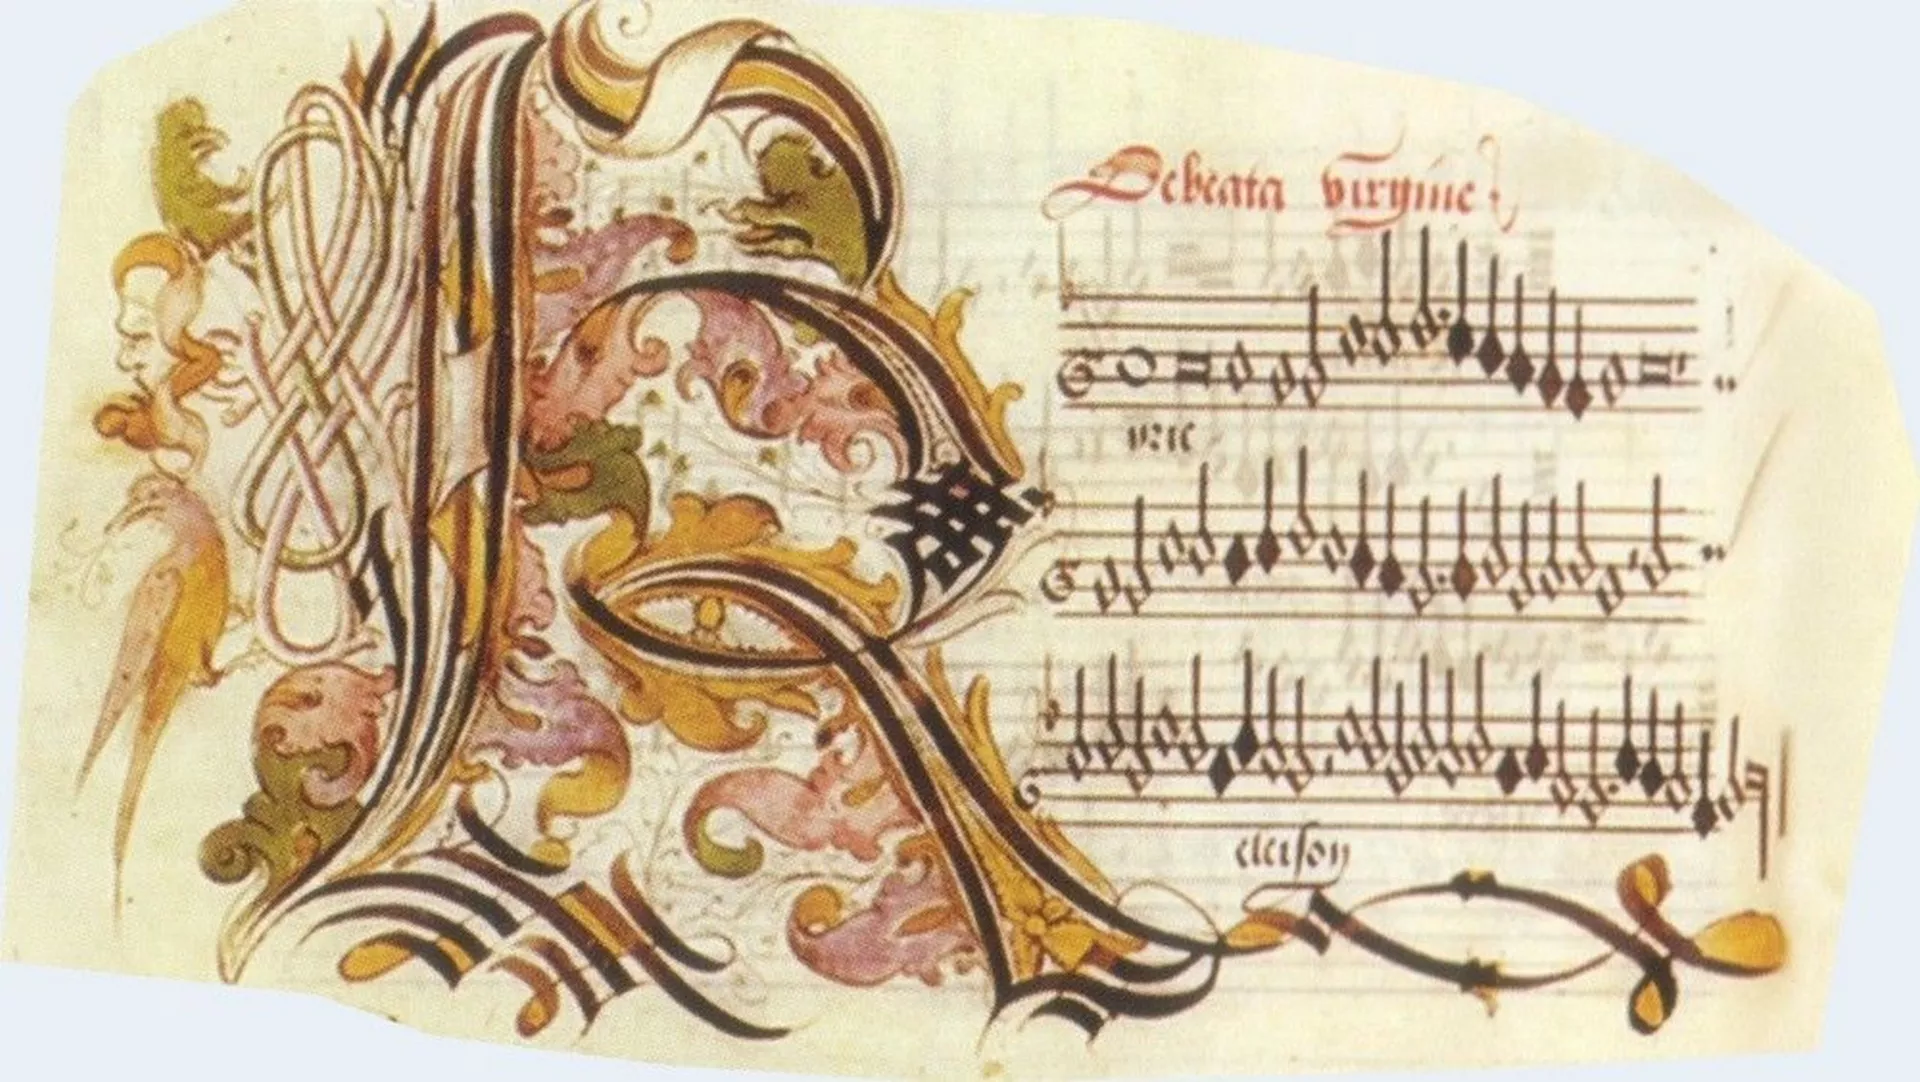 De beata virgine
Kyrie
eleison